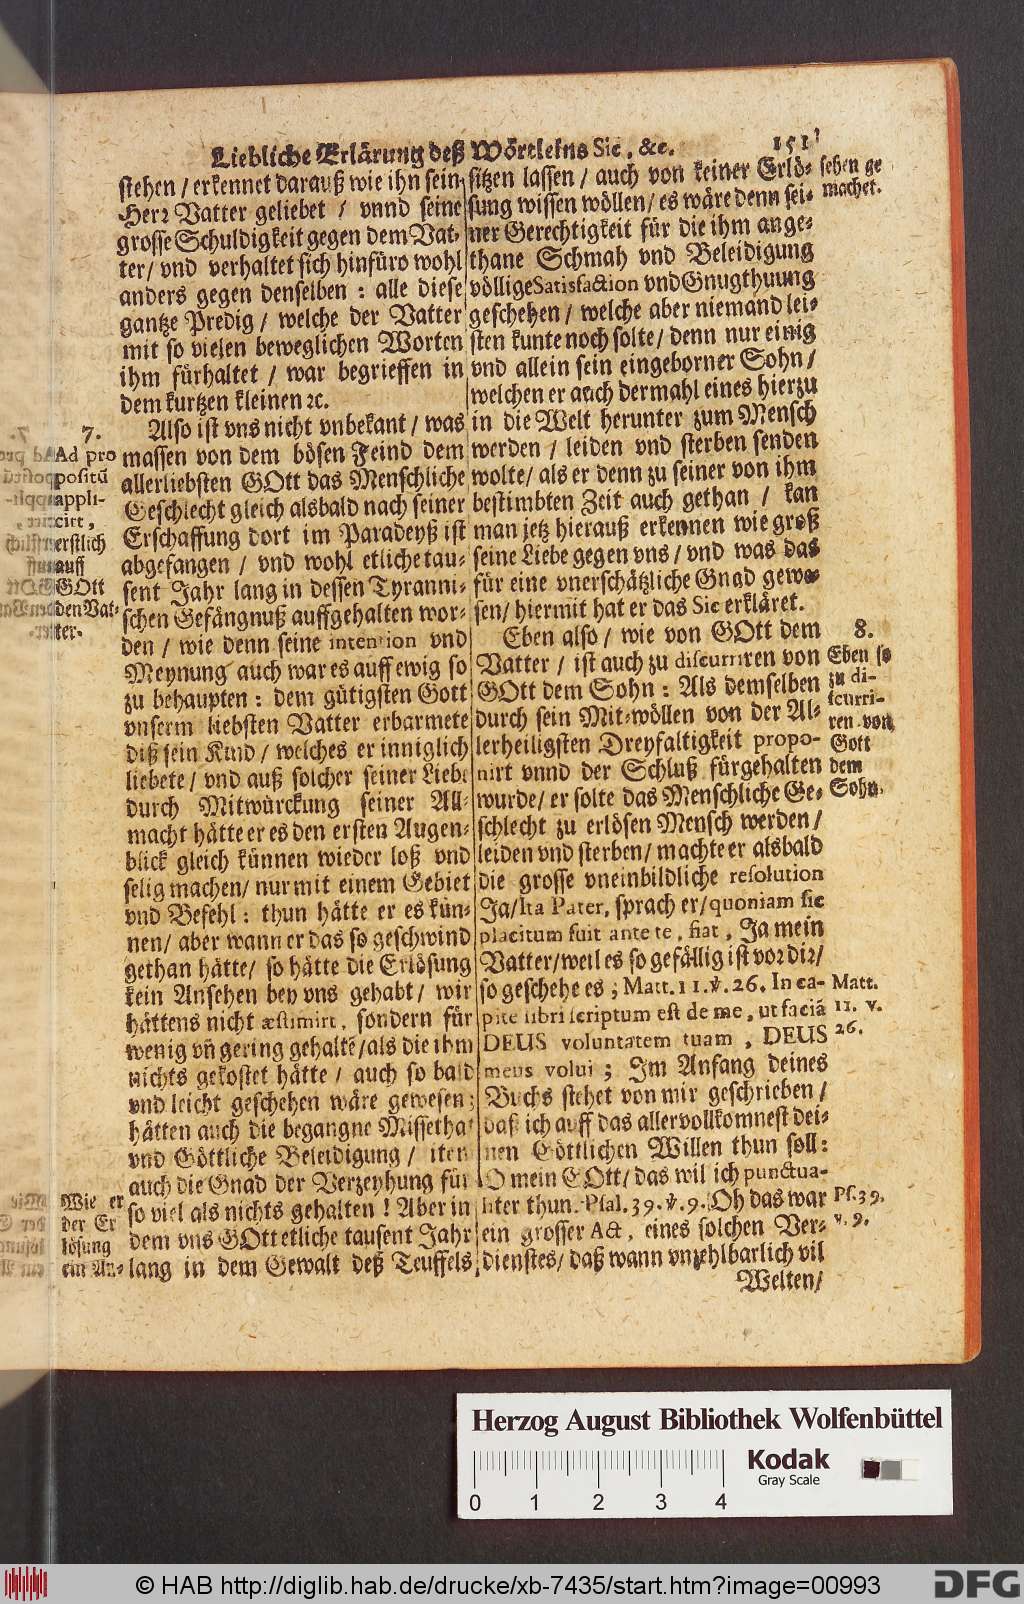 Liebliche Erklärung deß Wörtleins Sic, &c. 151
stehen / erkennet darauß wie ihn sein
Herr Vatter geliebet / vnnd seine
grosse Schuldigkeit gegen dem Vat-
ter / vnd verhaltet sich hinfüro wohl
anders gegen denselben : alle diese
gantze Predig / welche der Vatter
mit so vielen beweglichen Worten
ihm fürhaltet / war begrieffen in
dem kurtzen kleinen ꝛc.
7.
Ad pro
positū
appli-
cirt,
erstlich
auff
GOtt
den Vat-
ter.
Also ist vns nicht vnbekant / was
massen von dem bösen Feind dem
allerliebsten GOtt das Menschliche
Geschlecht gleich alsbald nach seiner
Erschaffung dort im Paradeyß ist
abgefangen / vnd wohl etliche tau-
sent Jahr lang in dessen Tyranni-
schen Gefängnuß auffgehalten wor-
den / wie denn seine intention vnd
Meynung auch war es auff ewig so
zu behaupten : dem gütigsten Gott
vnserm liebsten Vatter erbarmete
diß sein Kind / welches er inniglich
liebete / vnd auß solcher seiner Liebe
durch Mitwürckung seiner All-
macht hätte er es den ersten Augen-
blick gleich künnen wieder loß vnd
selig machen / nur mit einem Gebiet
vnd Befehl : thun hätte er es kün-
nen / aber wann er das so geschwind
gethan hätte / so hätte die Erlösung
kein Ansehen bey vns gehabt / wir
hättens nicht æstimirt, sondern für
wenig vñ gering gehaltē / als die ihm
nichts gekostet hätte / auch so bald
vnd leicht geschehen wäre gewesen ;
hätten auch die begangne Missethat
vnd Göttliche Beleidigung / item
auch die Gnad der Verzeyhung für
so viel als nichts gehalten ! Aber in
dem vns GOtt etliche tausent Jahr
lang in dem Gewalt deß Teuffels
Wie er
der Er
lösung
ein An-
sitzen lassen / auch von keiner Erlö-
sung wissen wöllen / es wäre denn sei-
ner Gerechtigkeit für die ihm ange-
thane Schmah vnd Beleidigung
völlige Satisfaction vnd Gnugthuung
geschehen / welche aber niemand lei-
sten kunte noch solte / denn nur einig
vnd allein sein eingeborner Sohn /
welchen er auch dermahl eines hierzu
in die Welt herunter zum Mensch
werden / leiden vnd sterben senden
wolte / als er denn zu seiner von ihm
bestimbten Zeit auch gethan / kan
man jetz hierauß erkennen wie groß
seine Liebe gegen vns / vnd was das
für eine vnerschätzliche Gnad gewe-
sen / hiermit hat er das Sic erkläret.
sehen ge
machet.
Eben also / wie von GOtt dem
Vatter / ist auch zu discurriren von
GOtt dem Sohn : Als demselben
durch sein Mit-wöllen von der Al-
lerheiligsten Dreyfaltigkeit propo-
nirt vnnd der Schluß fürgehalten
wurde / er solte das Menschliche Ge-
schlecht zu erlösen Mensch werden /
leiden vnd sterben / machte er alsbald
die grosse vneinbildliche resolution
Ja / Ita Pater, sprach er / quoniam sic
placitum fuit ante te, fiat, Ja mein
Vatter / weil es so gefällig ist vor dir /
so geschehe es ; Matt. 11. ℣. 26. In ca-
pite libri scriptum est de me, ut faciā
DEUS voluntatem tuam, DEUS
meus volui ; Im Anfang deines
Buchs stehet von mir geschrieben /
daß ich auff das allervollkomnest dei-
nen Göttlichen Willen thun soll :
O mein GOtt / das wil ich punctua-
liter thun. Psal. 39. ℣. 9. Oh das war
ein grosser Act, eines solchen Ver-
dienstes / daß wann vnzehlbarlich vil
Welten /
8.
Eben so
zu di-
scurri-
ren von
Gott
dem
Sohn.
Matt.
11. v.
26.
Ps. 39.
v. 9.
Herzog August Bibliothek Wolfenbüttel
Kodak
Gray Scale
0 1 2 3 4
© HAB http://diglib.hab.de/drucke/xb-7435/start.htm?image=00993
DFG